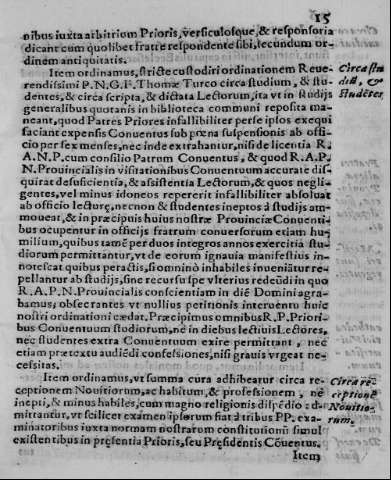 15
nibus iuxta arbitrium Prioris, versiculosque, & responsoria
dicant cum quolibet fratre respondente sibi, secundum or-
dinem antiquitatis.
Item ordinamus, stricte custodiri ordinationem Reue-
rendissimi P. N. G. F. Thomæ Turco circa studium, & stu-
dentes, & circa scripta, & dictata Lectorum, ita vt in studijs
generalibus quotanis in bibliotheca communi reposita ma-
neant, quod Patres Priores infallibiliter per se ipsos exequi
faciant expensis Conuentus sub pœna suspensionis ab offi-
cio per sex menses, nec inde extrahantur, nisi de licentia R.
A. N. P. cum consilio Patrum Conuentus, & quod R. A. P.
N. Prouincialis in visitationibus Conuentuum accurate dis-
quirat de sufficientia, & assistentia Lectorum, & quos negli-
gentes, vel minus idoneos repererit infallibiliter absoluat
ab officio lecturę, necnon & studentes ineptos à studijs am-
moueat, & in præcipuis huius nostræ Prouinciæ Conuenti-
bus occupentur in officijs fratrum conuersorum etiam hu-
milium, quibus tamẽ per duos integros annos exercitia stu-
diorum permittantur, vt de eorum ignauia manifestius in-
notescat quibus peractis, si omninò inhabiles inueniãtur re-
pellantur ab studijs, sine recursu spe vlterius redeũdi in quo
R. A. P. N. Prouincialis conscientiam in diẽ Domini agra-
bamus; obsecrantes vt nullius petitionis interuentu huic
nostri ordinationi cædat. Præcipimus omnibus R. P. Priori-
bus Conuentuum studiorum, nè in diebus lectiuis Lectores,
nec studentes extra Conuentuum exire permittant, nec
etiam prætextu audiẽdi confessiones, nisi grauis vrgeat ne-
cessitas.
Item ordinamus, vt summa cura adhibeatur circa re-
ceptionem Nouitiorum, ac habitum, & professionem, nè
inepti, & minus habiles, cum magno religionis dispẽdio ad-
mittantur, vt scilicet examen ipsorum fiat à tribus PP. exa-
minatoribus iuxta normam nostrarum constitutionũ simul
existentibus in presentia Prioris, seu Presidentis Cõuentus.
Item
Circa stu
diũ, &
Studẽtes
Circa re-
ceptionẽ
Nouitio-
rum.